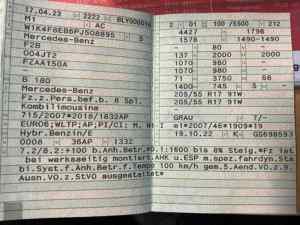 17.04.23 2222 BLY000016
M1 AC
W1K4F8EB6PJ508895 5
Mercedes-Benz
F2B
004JT2
FZAA150A
B 180
Mercedes-Benz
Fz.z.Pers.bef.b. 8 Spl.
Kombilimousine
715/2007*2018/1832AP
EURO6;WLTP;AP;PI/CI; M, N1-I
Hybr.Benzin/E
0008 36AP 1332
01 100 /5500 212
4427 1796
1578 1490-1490
- 80 -
137 2000 2000
1070 980 - -
1070 980 -
71 3750 56
1400 745
205/55 R17 91W
205/55 R17 91W
-
GRAU 7/-
*2007/46*1909*19
19.10.22 K
7.2/8.2:+100 b.Anh.Betr.*O.1:1600 bis 8% Steig.*Fz ist
bei werksseitig montiert.AHK u.ESP m.spez.fahrdyn.Sta
bi.Syst.f.Anh.Betr.f.Tempo 100 km/h gem.5.Aend.VO.z.9.
Ausn.VO.z.StVO ausgestattet*